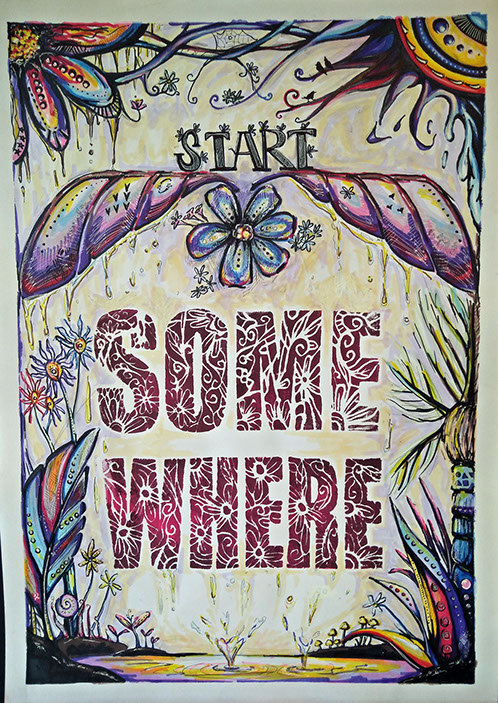 START
SOME
WHERE